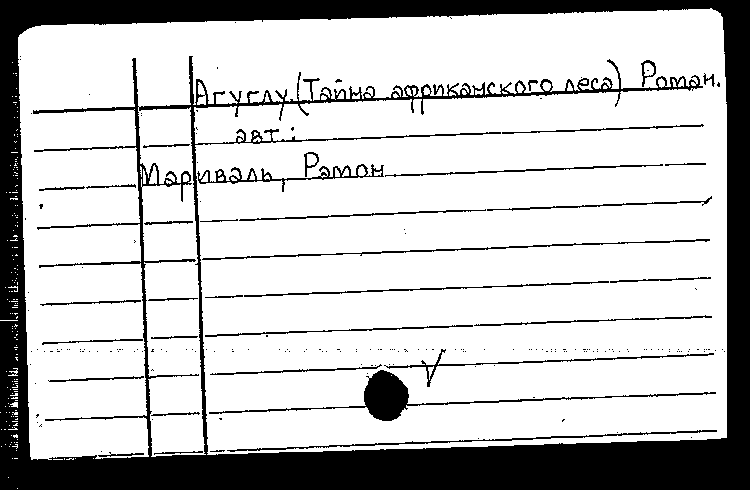 Агуглу.(Тайна африканского леса) Роман.
авт.:
Мариваль, Рамон